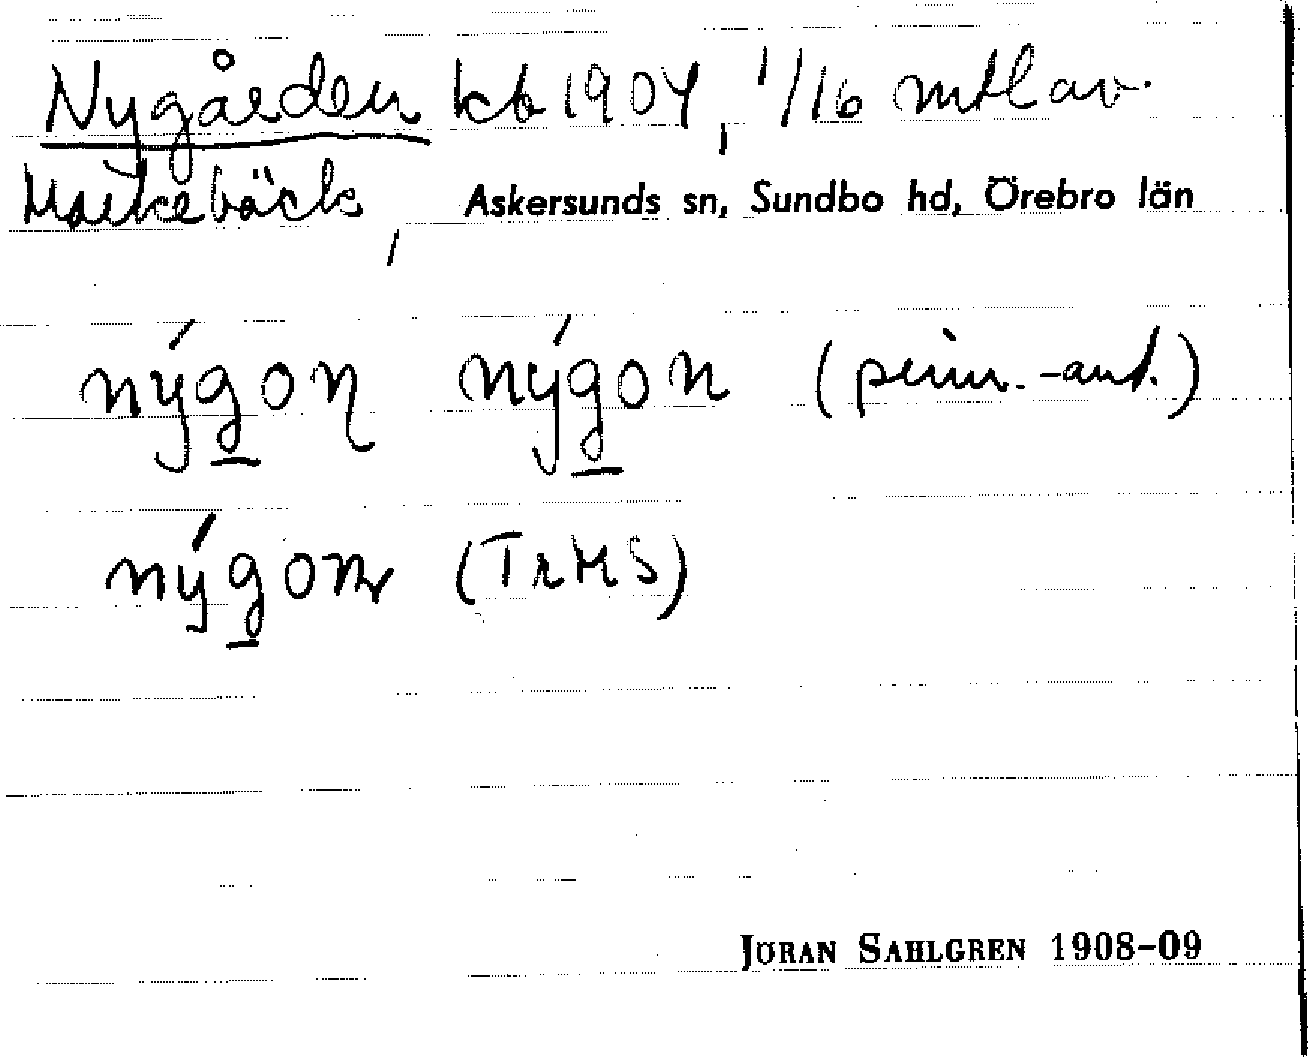 Nygården kb 1904, 1/16 mtl av
Markebäck, Askersunds sn, Sundbo hd, Örebro län
nýgoꞃ nýgon (prim.-ant.)
nýgon (TrHS)
JÖRAN SAHLGREN 1908–09